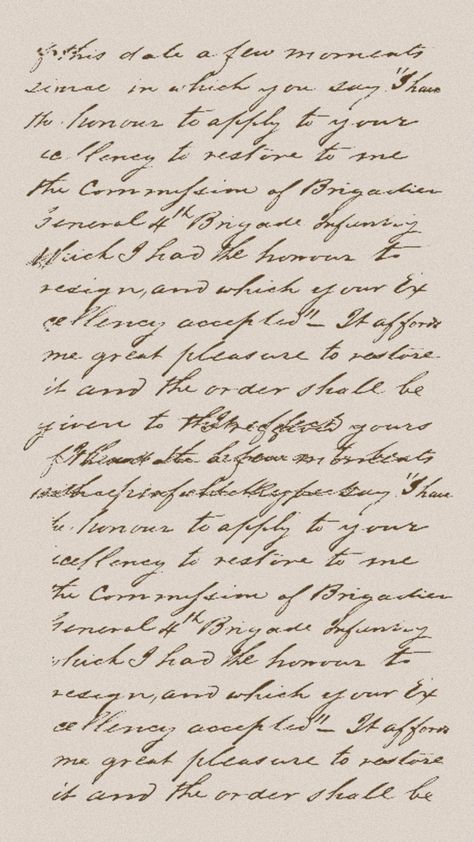 of this date a few moments
since in which you say "I have
the honour to apply to your
cellency to restore to me
the Commission of Brigadier
General 4th Brigade Infantry
which I had the honour to
resign, and which your Ex
cellency accepted" – It affords
me great pleasure to restore
it and the order shall be
given to yours
say "I have
honour to apply to your
cellency to restore to me
the Commission of Brigadier
General 4th Brigade Infantry
which I had the honour to
resign, and which your Ex
cellency accepted" – It affords
me great pleasure to restore
it and the order shall be